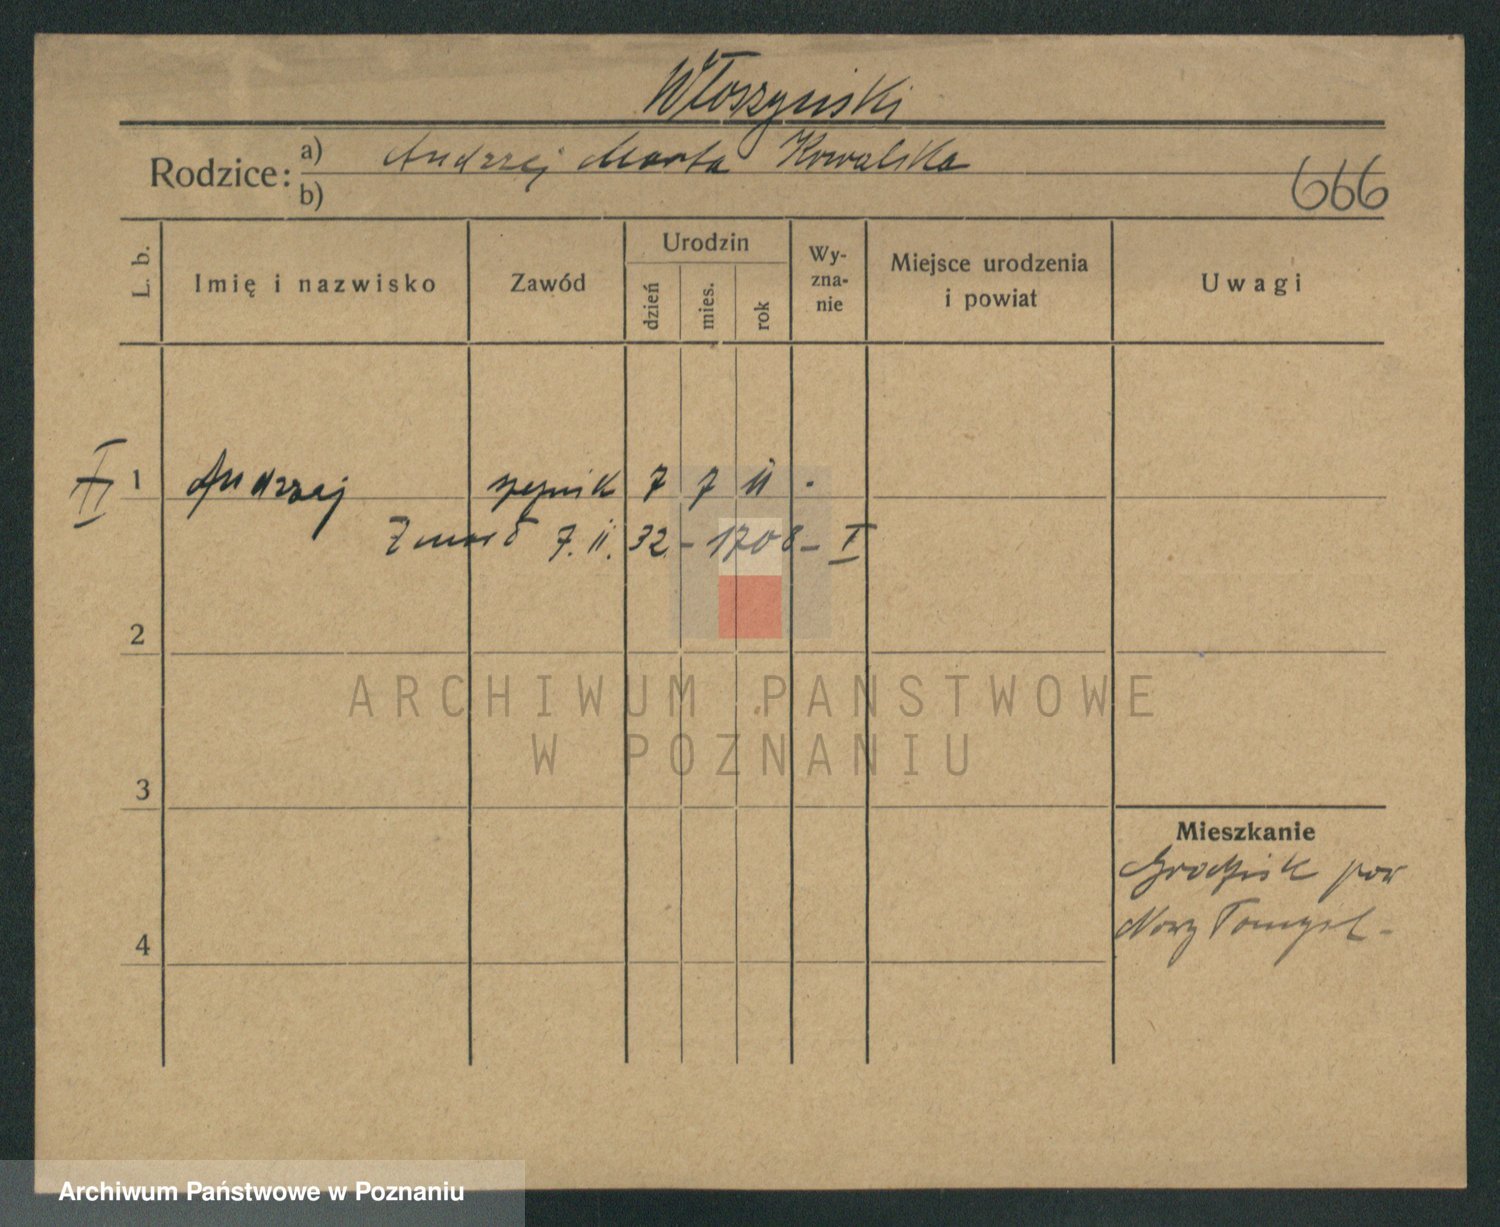 Włoszyński
Rodzice: a) Andrzej Marta Kowalska
b)
666
L. b.
Imię i nazwisko
Zawód
Urodzin
dzień
mies.
rok
Wy-
zna-
nie
Miejsce urodzenia
i powiat
Uwagi
II 1 Andrzej 7 7 11 -
Zmarł 7. 11. 32 - 1708 - I
2
3
4
Mieszkanie
Grodzisk pow
Nowy Tomyśl -
ARCHIWUM PAŃSTWOWE
W POZNANIU
Archiwum Państwowe w Poznaniu